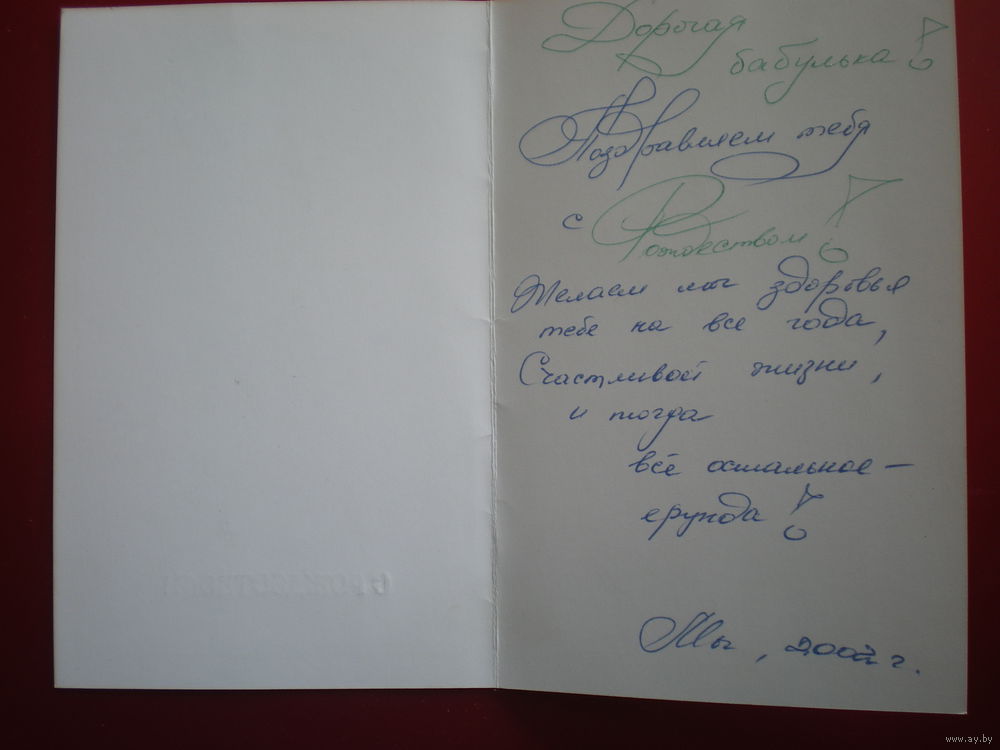 Дорогая
бабулька!
Поздравляем тебя
с Рождеством!
Желаем мы здоровья
тебе на все года,
Счастливой жизни,
и тогда
всё остальное —
ерунда!
Мы, 2002 г.
www.ay.by